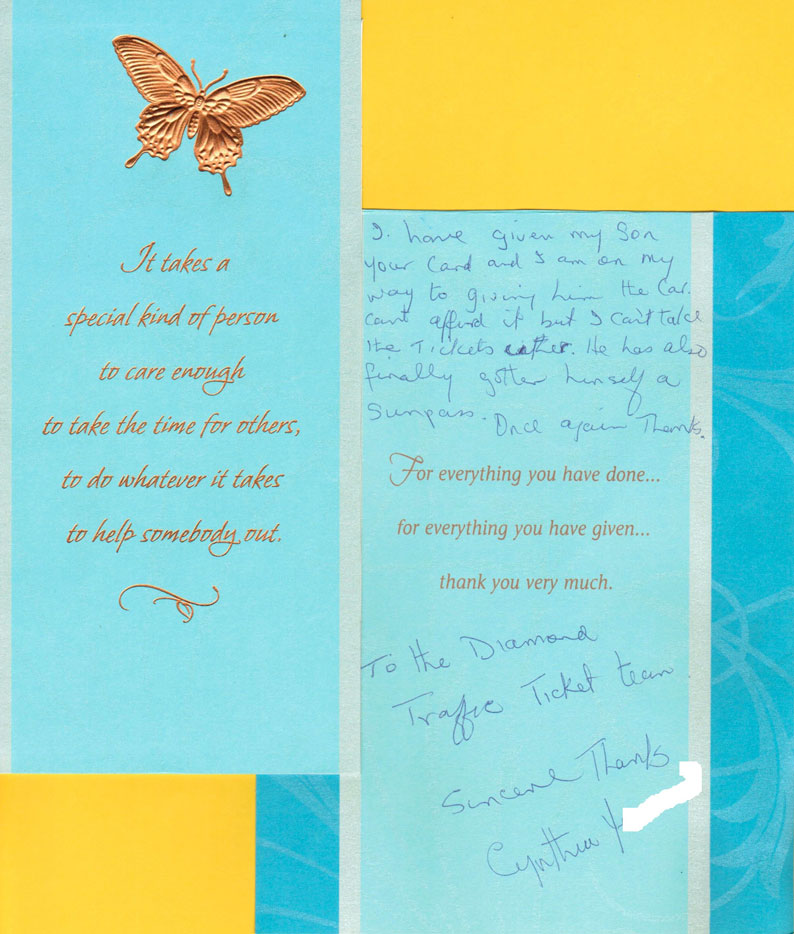 It takes a
special kind of person
to care enough
to take the time for others,
to do whatever it takes
to help somebody out.
I. have given my Son
your Card and I am on my
way to giving him the Car.
cant afford it but I can't take
the Tickets either. He has also
finally gotten himself a
Sunpass. Once again Thanks.
For everything you have done...
for everything you have given...
thank you very much.
To the Diamond
Traffic Ticket team.
Sincere Thanks
Cynthia Y